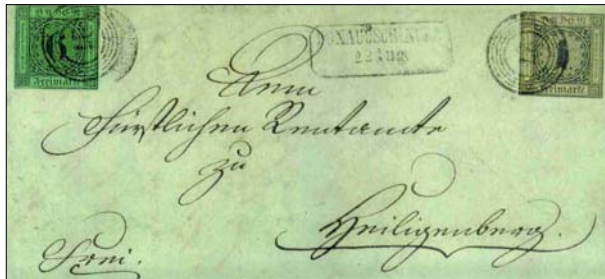 Baden
6
Freimarke
DONAUESCHINGEN
22 Aug
Baden
1
Freimarke
Dem
Fürstlichen Rentamte
zu
Heiligenberg.
Frei.